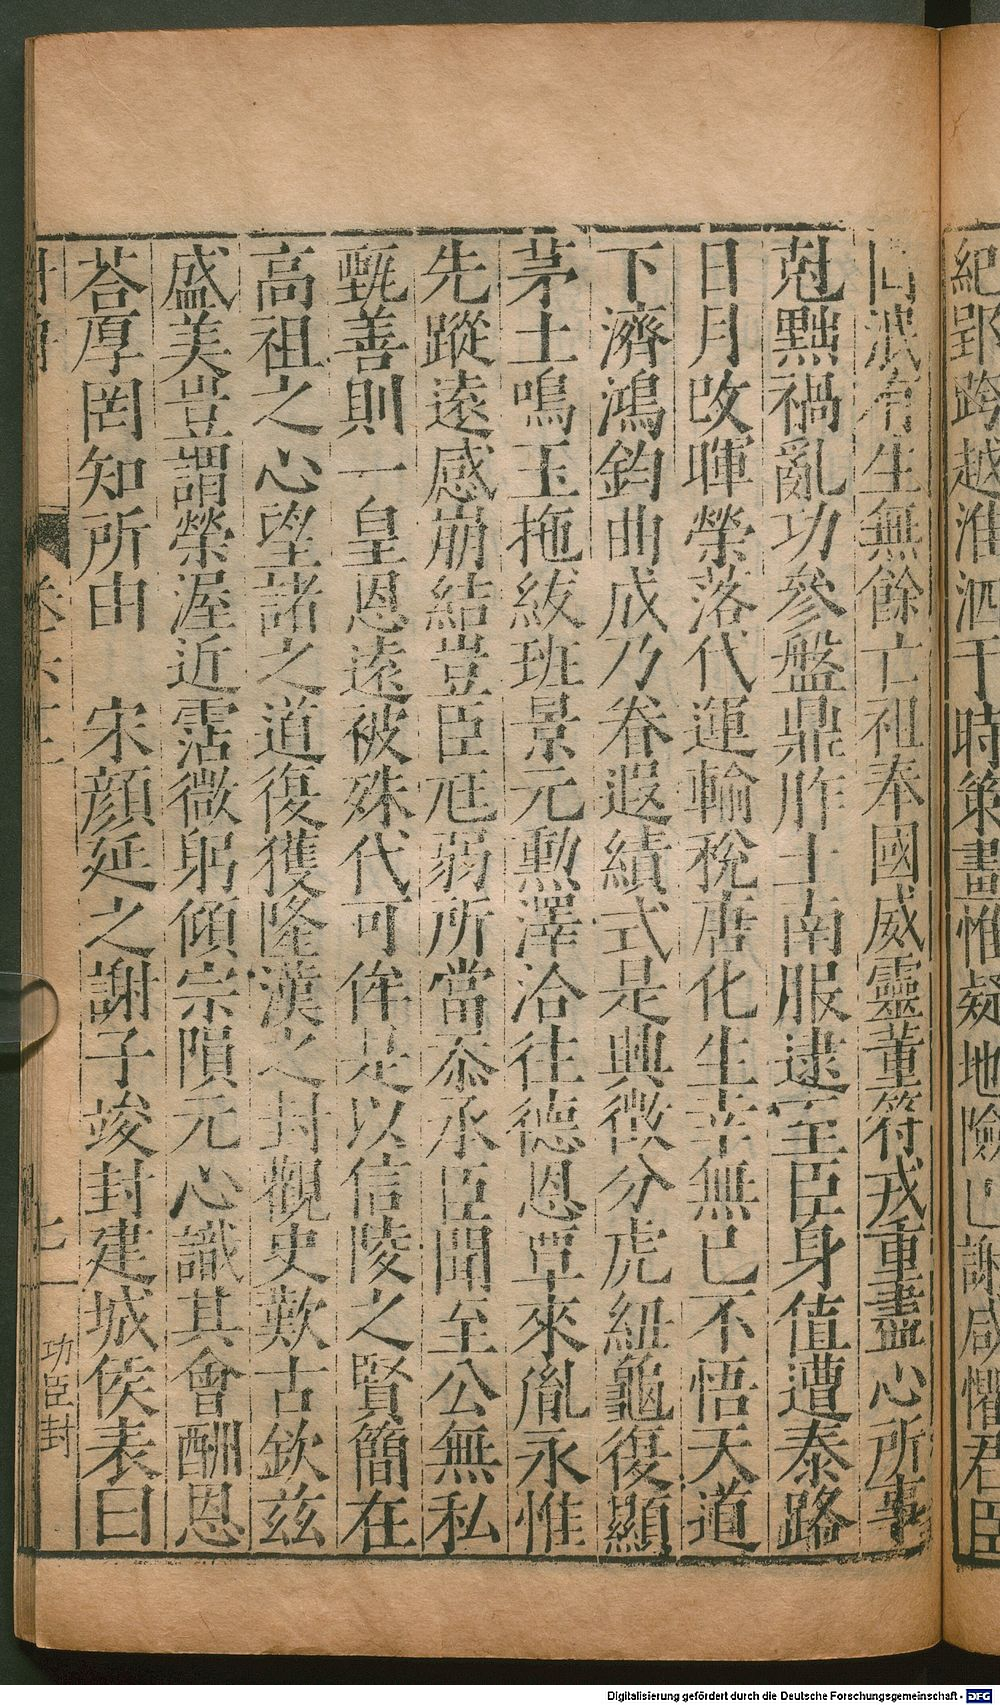 紀郢跨越淮泗于時策畫惟疑地險已謝咸懼君臣
同滅有生無餘亡祖奉國威靈董符戎重盡心所事
尅黜禍亂功參盤鼎胙土南服逮至臣身值遭泰路
日月改暉榮落代運輸稅唐化生幸無已不悟天道
下濟鴻鈞曲成乃眷遐績式是興徴分虎紐龜復顯
茅土鳴玉拖紱班景元勲澤洽往德恩覃來胤永惟
先蹤遠感崩結豈臣尫弱所當忝承臣聞至公無私
甄善則一皇恩遠被殊代可侔是以信陵之賢簡在
高祖之心望諸之道復獲隆漢之封觀史歎古欽兹
盛美豈謂榮渥近霑微躬傾宗隕元心識其會酬恩
荅厚罔知所由　宋顔延之謝子竣封建城侯表曰
功臣封
Digitalisierung gefördert durch die Deutsche Forschungsgemeinschaft - DFG